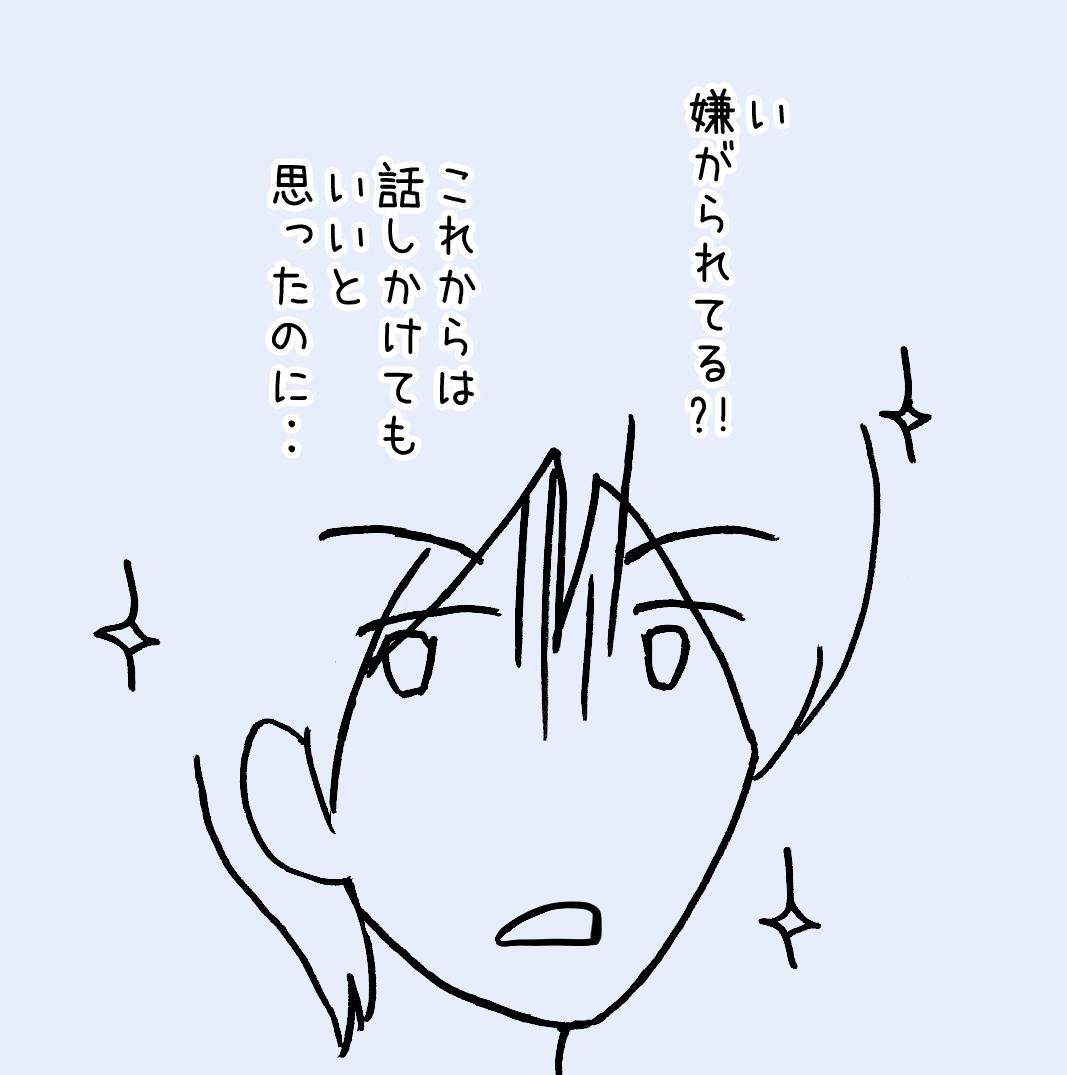 い
嫌がられてる?!
これからは
話しかけても
いいと
思ったのに‥